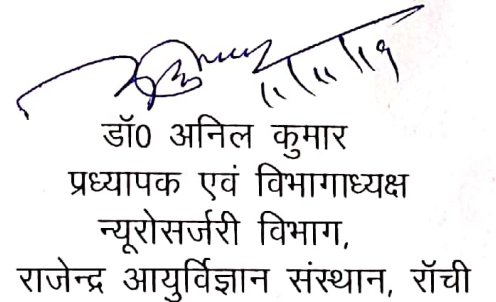 11/11/19
डॉ0 अनिल कुमार
प्रध्यापक एवं विभागाध्यक्ष
न्यूरोसर्जरी विभाग,
राजेन्द्र आयुर्विज्ञान संस्थान, रॉची